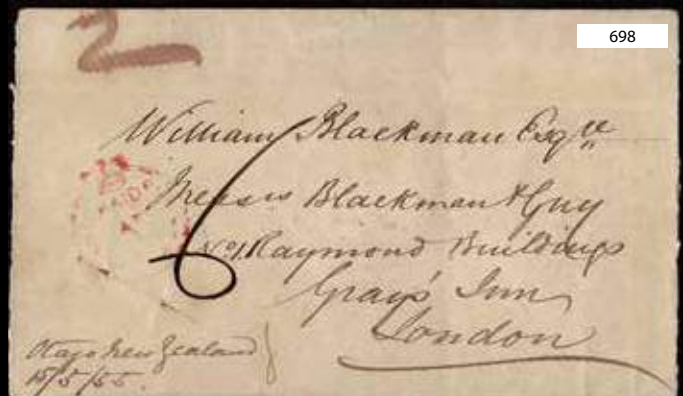 698
2
William Blackman Esqre
Messrs Blackman & Guy
No 1 Raymond Buildings
Gray's Inn
London
6
Otago New Zealand
15/5/55.